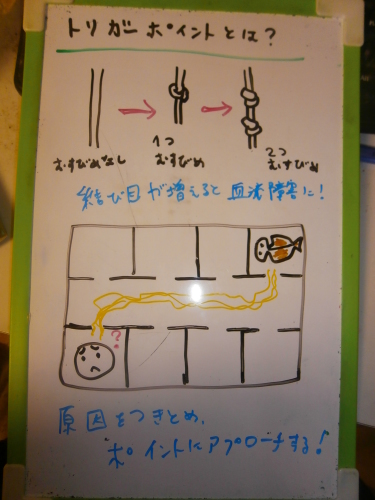 トリガーポイントとは?
むすびめなし
1つ
むすびめ
2つ
むすびめ
結び目が増えると血流障害に!
?
原因をつきとめ、
ポイントにアプローチする!